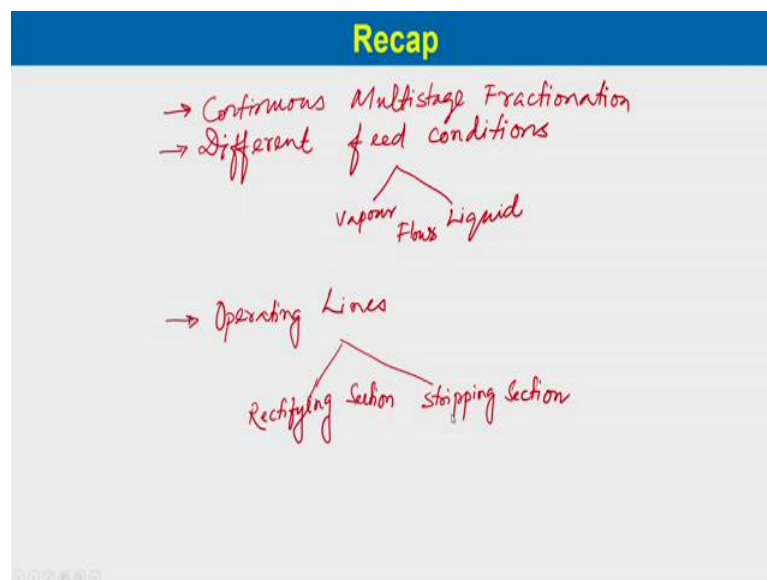 Recap
→ Continuous Multistage Fractionation
→ Different feed conditions
Vapour Flows Liquid
→ Operating Lines
Rectifying Section Stripping Section